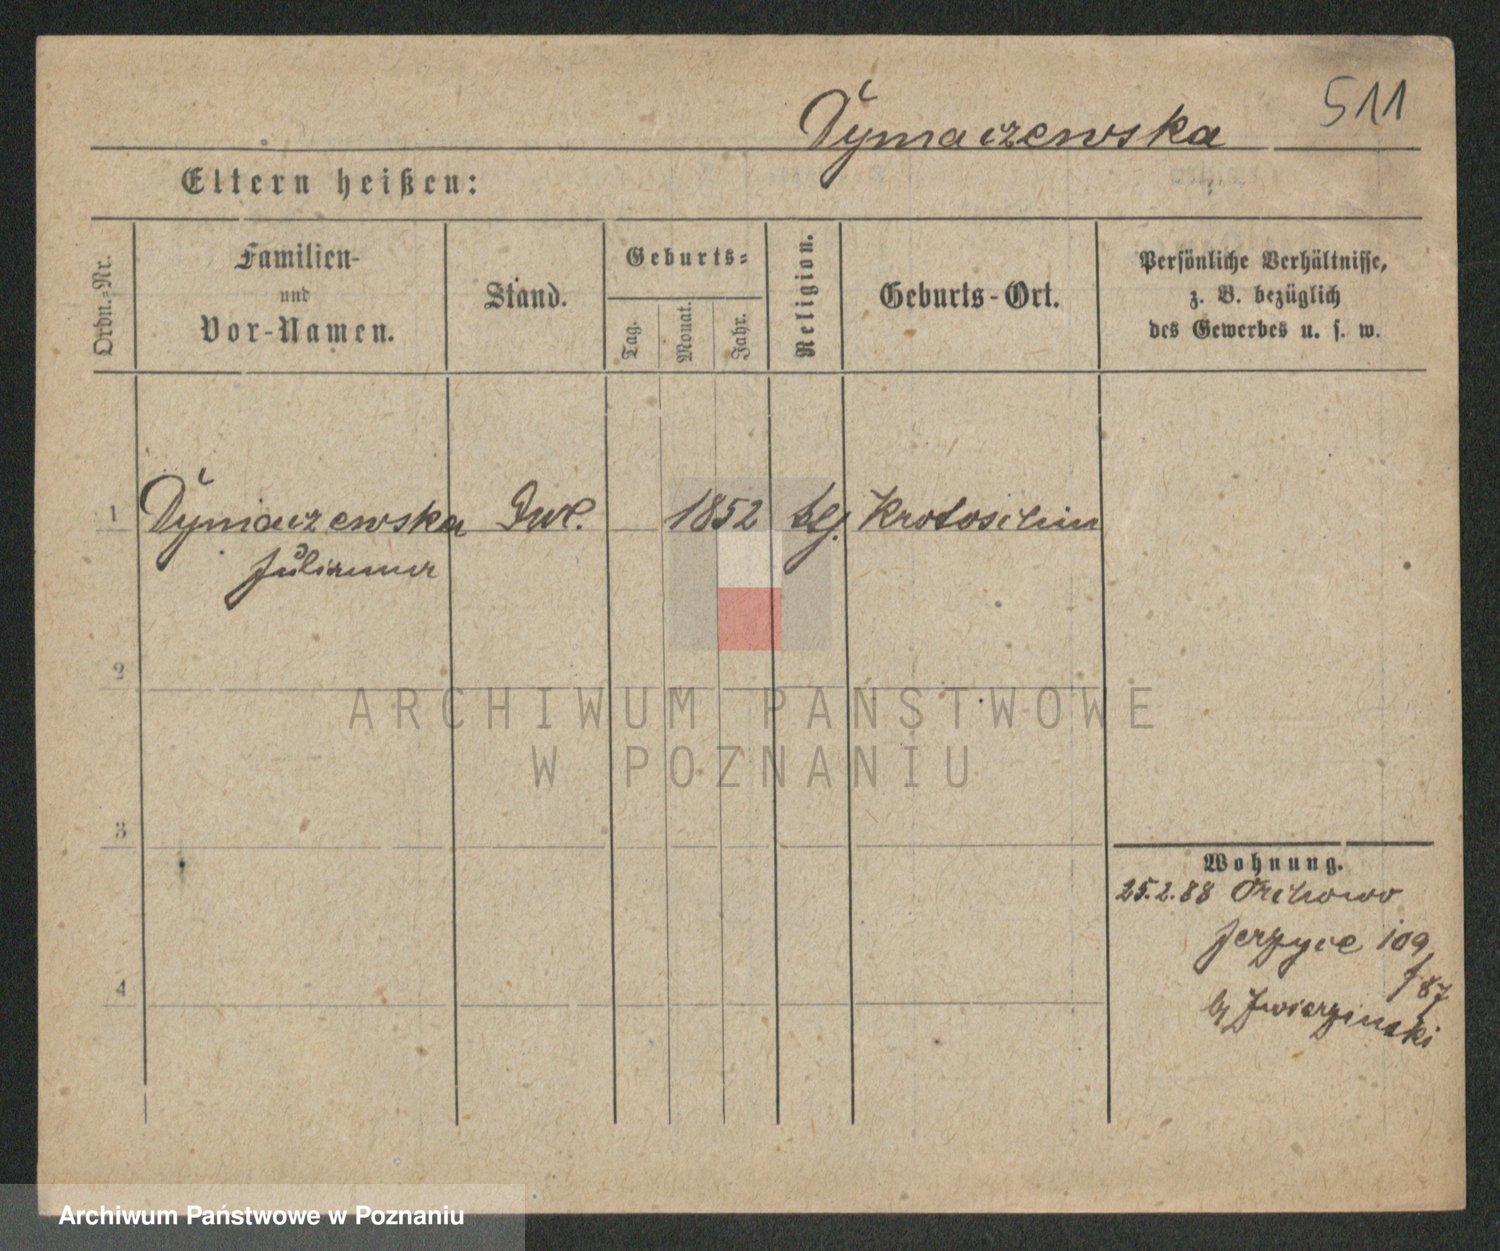 511
Dymaczewska
Eltern heißen:
Ordn.-Nr.
Familien-
und
Vor-Namen.
Stand.
Geburts-
Tag.
Monat.
Jahr.
Religion.
Geburts-Ort.
Persönliche Verhältnisse,
z. B. bezüglich
des Gewerbes u. s. w.
1 Dymaczewska 1852 Krotoschin
Julianna
2
ARCHIWUM PAŃSTWOWE
W POZNANIU
3
Wohnung.
25.2.88
Jerzyce 109
4
87
Zwierzynski
Archiwum Państwowe w Poznaniu